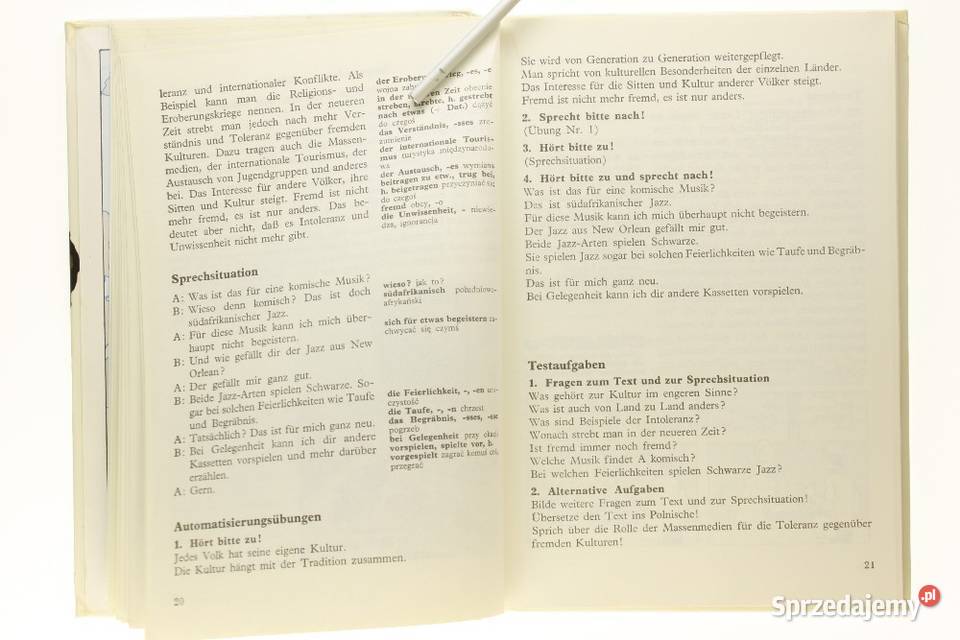 leranz und internationaler Konflikte. Als
Beispiel kann man die Religions- und
Eroberungskriege nennen. In der neueren
Zeit strebt man jedoch nach mehr Ver-
ständnis und Toleranz gegenüber fremden
Kulturen. Dazu tragen auch die Massen-
medien, der internationale Tourismus, der
Austausch von Jugendgruppen und anderes
bei. Das Interesse für andere Völker, ihre
Sitten und Kultur steigt. Fremd ist nicht
mehr fremd, es ist nur anders. Das be-
deutet aber nicht, daß es Intoleranz und
Unwissenheit nicht mehr gibt.
der Eroberungskrieg, -es, -e
wojna
in der neueren Zeit obecnie
streben, strebte, h. gestrebt
nach etwas (+ Dat.) dążyć
do czegoś
das Verständnis, -sses zro-
zumienie
der internationale Touris-
mus turystyka międzynarodo-
wa
der Austausch, -es wymiana
beitragen zu etw., trug bei,
h. beigetragen przyczyniać się
do czegoś
fremd obcy, -o
die Unwissenheit, - niewie-
dza, ignorancja
Sprechsituation
A: Was ist das für eine komische Musik?
B: Wieso denn komisch? Das ist doch
südafrikanischer Jazz.
A: Für diese Musik kann ich mich über-
haupt nicht begeistern.
B: Und wie gefällt dir der Jazz aus New
Orlean?
A: Der gefällt mir ganz gut.
B: Beide Jazz-Arten spielen Schwarze. So-
gar bei solchen Feierlichkeiten wie Taufe
und Begräbnis.
A: Tatsächlich? Das ist für mich ganz neu.
B: Bei Gelegenheit kann ich dir andere
Kassetten vorspielen und mehr darüber
erzählen.
A: Gern.
wieso? jak to?
südafrikanisch południowo-
afrykański
sich für etwas begeistern za-
chwycać się czymś
die Feierlichkeit, -, -en uro-
czystość
die Taufe, -, -n chrzest
das Begräbnis, -sses, -sse
pogrzeb
bei Gelegenheit przy okazji
vorspielen, spielte vor, h.
vorgespielt zagrać komuś coś,
przegrać
Automatisierungsübungen
1. Hört bitte zu!
Jedes Volk hat seine eigene Kultur.
Die Kultur hängt mit der Tradition zusammen.
20
Sie wird von Generation zu Generation weitergepflegt.
Man spricht von kulturellen Besonderheiten der einzelnen Länder.
Das Interesse für die Sitten und Kultur anderer Völker steigt.
Fremd ist nicht mehr fremd, es ist nur anders.
2. Sprecht bitte nach!
(Übung Nr. 1)
3. Hört bitte zu!
(Sprechsituation)
4. Hört bitte zu und sprecht nach!
Was ist das für eine komische Musik?
Das ist südafrikanischer Jazz.
Für diese Musik kann ich mich überhaupt nicht begeistern.
Der Jazz aus New Orlean gefällt mir gut.
Beide Jazz-Arten spielen Schwarze.
Sie spielen Jazz sogar bei solchen Feierlichkeiten wie Taufe und Begräb-
nis.
Das ist für mich ganz neu.
Bei Gelegenheit kann ich dir andere Kassetten vorspielen.
Testaufgaben
1. Fragen zum Text und zur Sprechsituation
Was gehört zur Kultur im engeren Sinne?
Was ist auch von Land zu Land anders?
Was sind Beispiele der Intoleranz?
Wonach strebt man in der neueren Zeit?
Ist fremd immer noch fremd?
Welche Musik findet A komisch?
Bei welchen Feierlichkeiten spielen Schwarze Jazz?
2. Alternative Aufgaben
Bilde weitere Fragen zum Text und zur Sprechsituation!
Übersetze den Text ins Polnische!
Sprich über die Rolle der Massenmedien für die Toleranz gegenüber
fremden Kulturen!
21
Sprzedajemy.pl